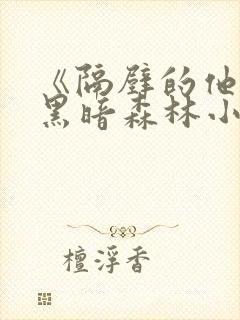 《隔壁的他
黑暗森林小
檀浮香